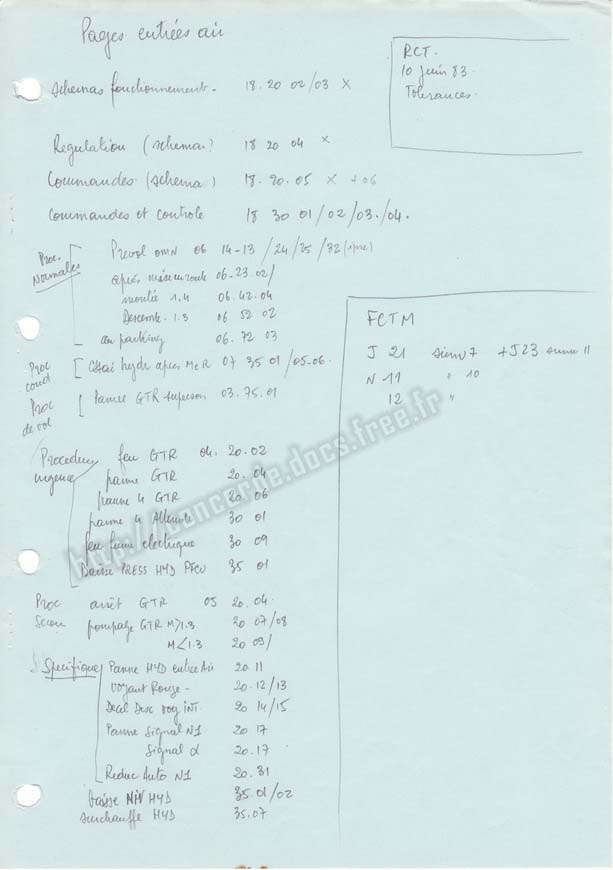 Pages entrées air
RCT.
10 Juin 83.
Tolerances.
schemas fonctionnement - 18.20 02/03 x
Regulation (schema) 18 20 04 x
Commandes (schema) 18.20.05 x +06
Commandes et controle 18 30 01/02/03/04.
Proc. Normales
Prevol OMN 06 14-13/24/25/72
après mise en route 06-23 02/
montée 1,4 06.42.04
Descente 1.3 06 52 02
au parking 06.72 03
Proc cond
Essai hydr apres MeR 07 35 01/05-06.
Proc de vol
Panne GTR superson 03.75.01
FCTM
J 21 simu 7 +J23 simu 11
N 11 " 10
12 "
Procedures urgence
feu GTR 04. 20.02
panne GTR 20.04
panne 4 GTR 20.06
panne 4 Alternat 30 01
feu fumée electrique 30 09
Baisse PRESS HYD PFCU 35 01
Proc Secou
arrêt GTR 05 20.04
pompage GTR M>1.3 20 07/08
M<1.3 20 09/
Specifique
Panne HYD entrée Air 20 11
Voyant Rouge - 20.12/13
Decal Desc voy INT 20 14/15
Panne Signal N1 20 17
Signal α 20.17
Reduc Auto N1 20.31
baisse NIV HYD 35.01/02
surchauffe HYD 35.07
http://concorde.docs.free.fr